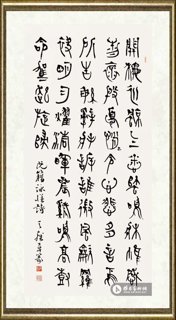 開秋兆涼氣蟋蟀鳴床帷感
物懷殷憂悄悄令心悲多言焉
所告繁辭將訴誰微風吹羅
袂明月耀清暉晨雞鳴高樹
命駕起旋歸
阮籍詠懷詩